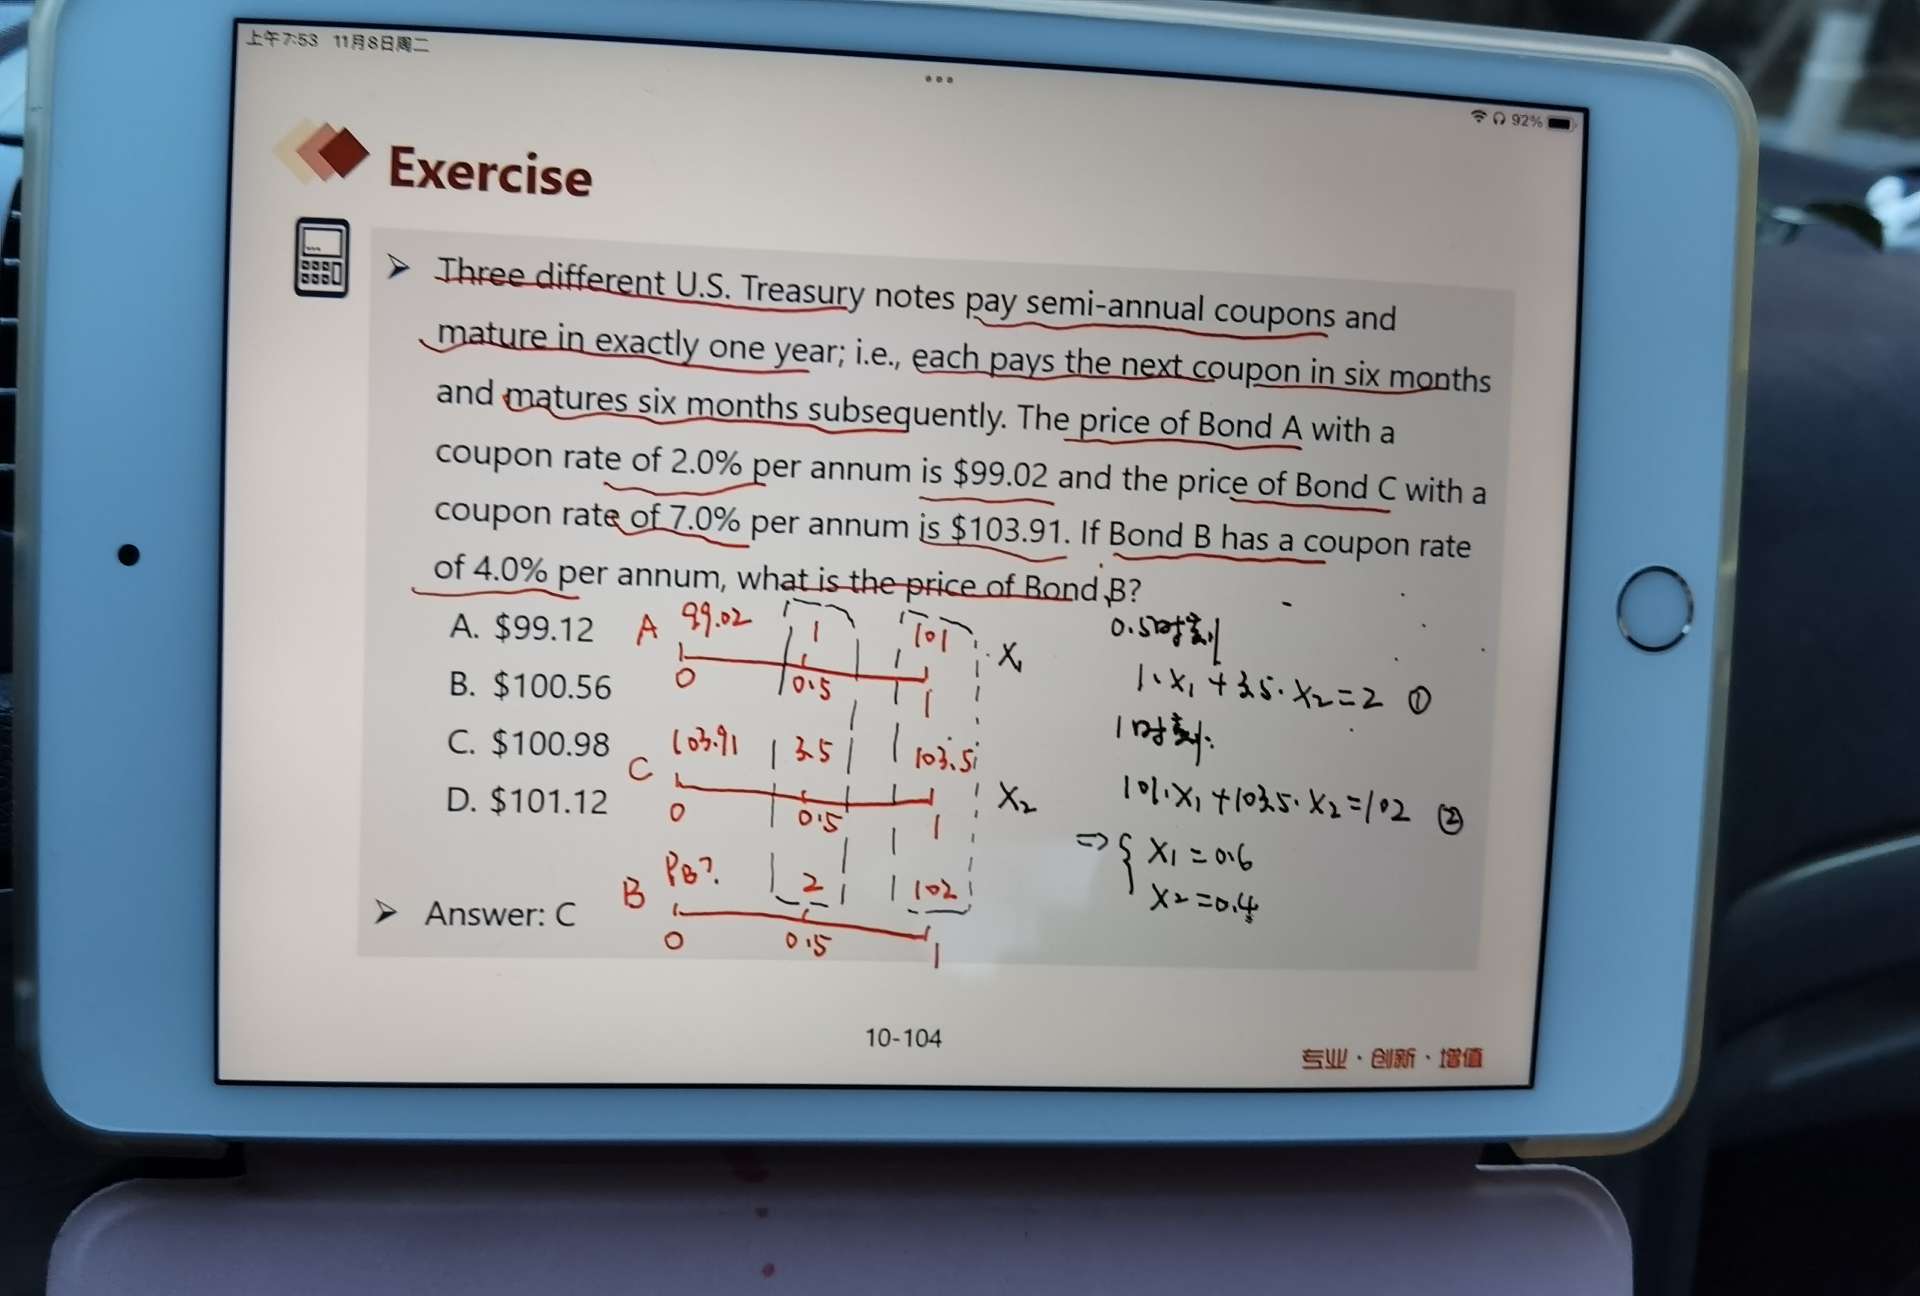 上午7:53 11月8日周二
92%
Exercise
Three different U.S. Treasury notes pay semi-annual coupons and
mature in exactly one year; i.e., each pays the next coupon in six months
and matures six months subsequently. The price of Bond A with a
coupon rate of 2.0% per annum is $99.02 and the price of Bond C with a
coupon rate of 7.0% per annum is $103.91. If Bond B has a coupon rate
of 4.0% per annum, what is the price of Bond B?
A. $99.12
B. $100.56
C. $100.98
D. $101.12
A 99.02 1 101 X₁
0 0.5 1
C 103.91 3.5 103.5 X₂
0 0.5 1
B PB? 2 102
0 0.5 1
0.5时刻
1·X₁+3.5·X₂=2 ①
1时刻:
101·X₁+103.5·X₂=102 ②
⇒ { X₁=0.6
X₂=0.4
Answer: C
10-104
专业·创新·增值